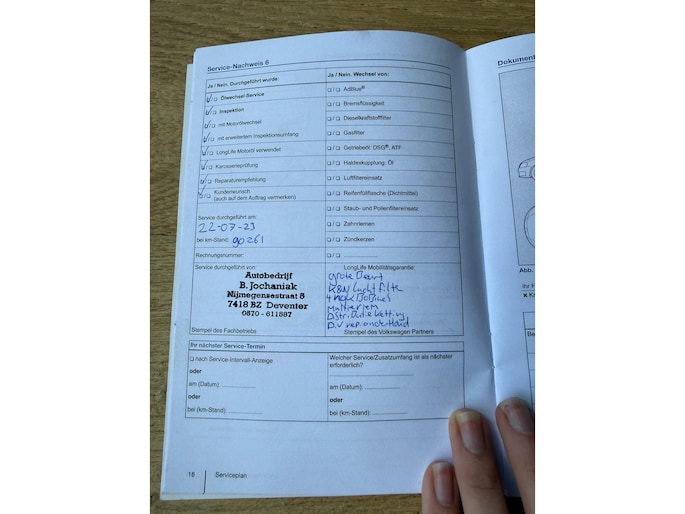 Service-Nachweis 6
Dokument
Ja / Nein. Durchgeführt wurde:
Ölwechsel-Service
Inspektion
mit Motorölwechsel
mit erweitertem Inspektionsumfang
LongLife Motoröl verwendet
Karosserieprüfung
Reparaturempfehlung
Kundenwunsch
(auch auf dem Auftrag vermerken)
Service durchgeführt am:
22-07-23
bei km-Stand: 90261
Rechnungsnummer:
Ja / Nein. Wechsel von:
AdBlue®
Bremsflüssigkeit
Dieselkraftstofffilter
Gasfilter
Getriebeöl: DSG®, ATF
Haldexkupplung, Öl
Luftfiltereinsatz
Reifenfüllflasche (Dichtmittel)
Staub- und Pollenfiltereinsatz
Zahnriemen
Zündkerzen
Service durchgeführt von:
Autobedrijf
B. Jochaniak
Nijmegensestraat 8
7418 BZ Deventer
0570 - 611887
Stempel des Fachbetriebs
LongLife Mobilitätsgarantie:
grote Beurt
K&N Lucht filter
Distributie ketting
Stempel des Volkswagen Partners
Ihr nächster Service-Termin
nach Service-Intervall-Anzeige
oder
am (Datum):
oder
bei (km-Stand):
Welcher Service/Zusatzumfang ist als nächster
erforderlich?
am (Datum):
oder
bei (km-Stand):
16
Serviceplan